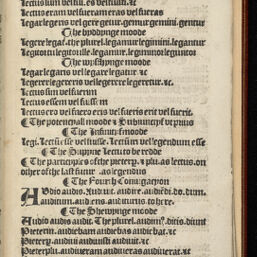 Lectus sum vel fui. es vel fuisti. ⁊c
Lectus eram vel fueram eras vel fueras
Legar legeris vel gere getur. gemur gemini. gentur
¶ The byddynge moode
Legere legat̃. the plurel. legamur legimini. legantur
Legitor tu legitor ille. legamur. leguntor
¶ The wysshynge moode
Legar legaris vel legare legatur. ⁊c
Legerer legereris vel legerere legeretur. ⁊c.
Lectus sim vel fuerim
Lectus essem vel fuissem
Lectus ero vel fuero eris vel fueris erit vel fuerit.
¶ The potencyall moode ⁊
¶ The Infinit̃ moode
Legi. Lectũ esse vel fuisse. Lectũ iri vel legendum esse
¶ The Suppine Lectu to be redde
¶ The participles of the preter ⁊ plu. as lectus. on
other of the last futur as legendus
¶ The Fourth Coniugacyon
Audio audis. audit. audire. audi
auditum. audiens. auditurus. to here.
¶ The Shewynge moode
Audio audis audit. The plurel. audim⁹. ditis. diunt
Preterin. audiebam audiebas audiebat. ⁊c
Pretery. audiui audiuisti audiuit. ⁊c
Preterplu. audiueram audiueras audiuerat. ⁊c